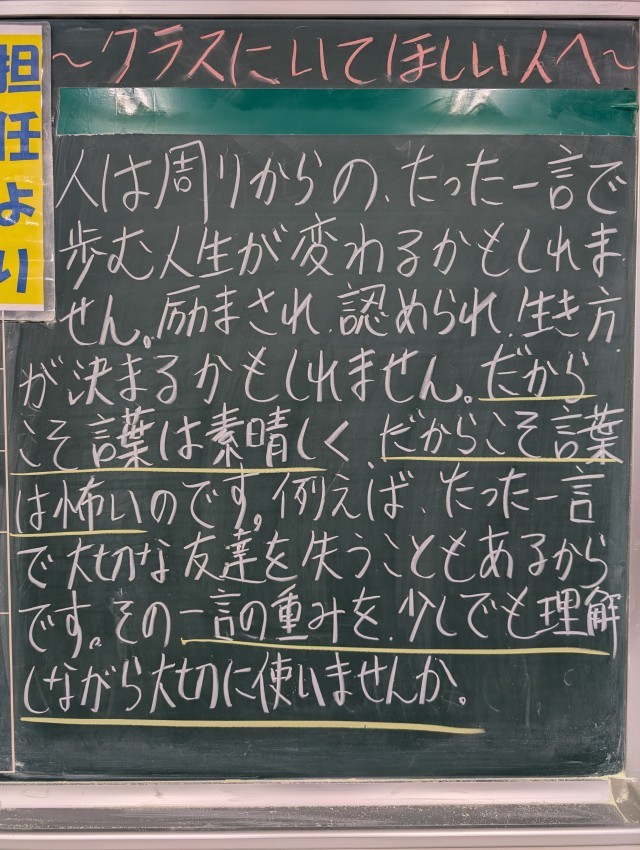 担任より
～クラスにいてほしい人へ～
人は周りからの、たった一言で
歩む人生が変わるかもしれま
せん。励まされ、認められ、生き方
が決まるかもしれません。だから
こそ言葉は素晴しく、だからこそ言葉
は怖いのです。例えば、たった一言
で大切な友達を失うこともあるから
です。その一言の重みを、少しでも理解
しながら大切に使いませんか。